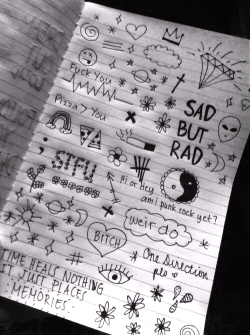 Fuck you
Pizza > You
SAD
BUT
RAD
;STFU
Hi. or Hey
am i punk rock yet?
weirdo
BITCH
One Direction
pls
TIME HEALS NOTHING
IT JUST PLACES
MEMORIES.